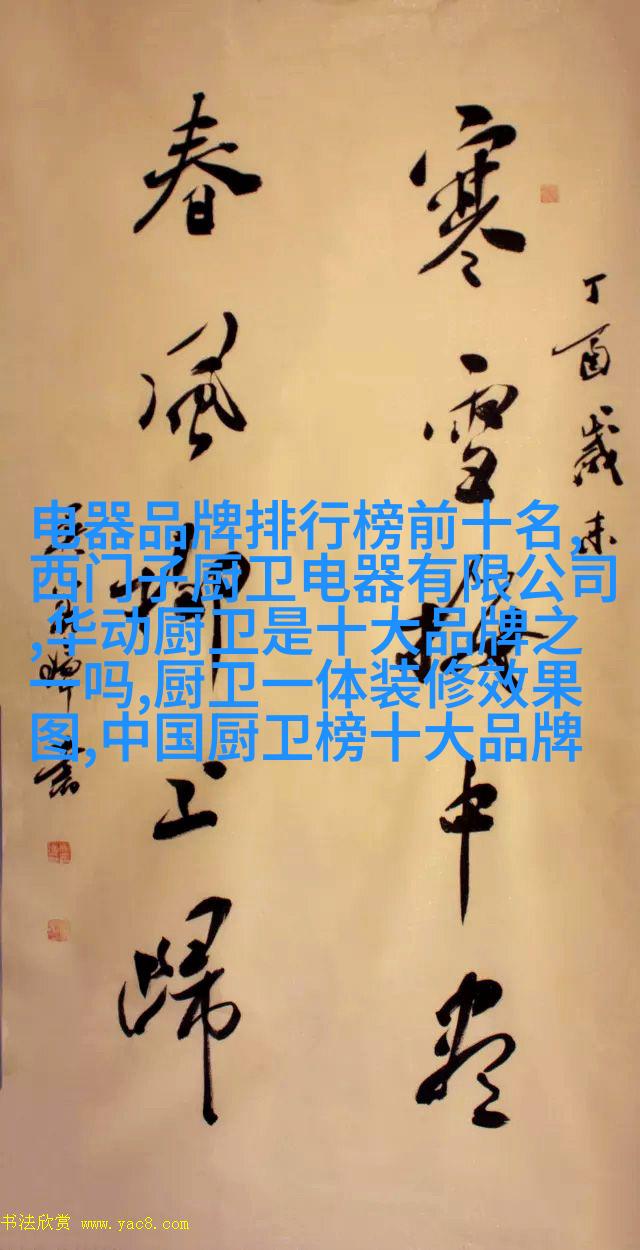 丁酉歲末
寒雪梅中盡
春風柳上歸
电器品牌排行榜前十名,
西门子厨卫电器有限公司
,华动厨卫是十大品牌之
一吗,厨卫一体装修效果
图,中国厨卫榜十大品牌
书法欣赏 www.yac8.com